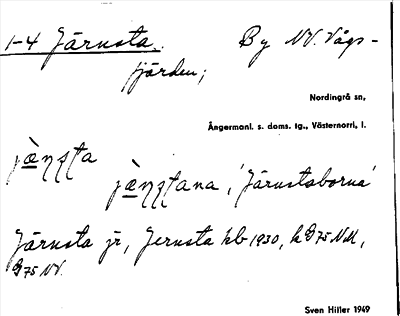 1-4 Järnsta. By NV. Vågs-
fjärden;
Nordingrå sn,
Ångermanl. s. doms. tg., Västernorrl. l.
jæ̀ṇʂʈa
jæ̀ṇʂʈana, 'Järnstaborna'
Järnsta jr, Jernsta kb 1930, k
75 NV.
Sven Hiller 1949